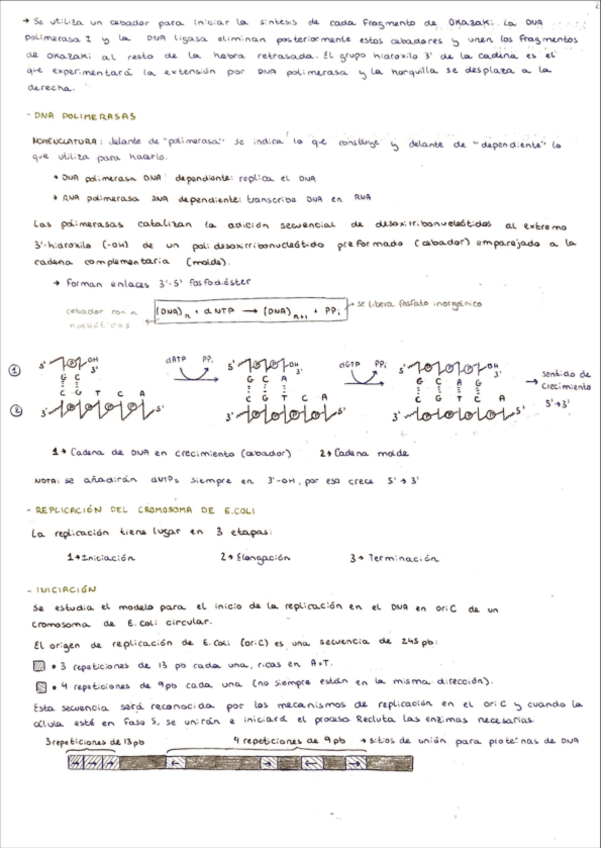 → Se utiliza un cebador para iniciar la síntesis de cada fragmento de Okazaki. La DNA
polimerasa I y la DNA ligasa eliminan posteriormente estos cebadores y unen los fragmentos
de Okazaki al resto de la hebra retrasada. El grupo hidroxilo 3' de la cadena es el
que experimentará la extensión por DNA polimerasa y la horquilla se desplaza a la
derecha.
- DNA POLIMERASAS
NOMENCLATURA: delante de "polimerasa" se indica lo que construye y delante de "dependiente" lo
que utiliza para hacerlo.
• DNA polimerasa DNA dependiente: replica el DNA
• RNA polimerasa DNA dependiente: transcribe DNA en RNA
Las polimerasas catalizan la adición secuencial de desoxirribonucleótidos al extremo
3'-hidroxilo (-OH) de un polidesoxirribonucleótido preformado (cebador) emparejado a la
cadena complementaria (molde).
→ Forman enlaces 3'-5' fosfodiéster
cebador con n nucleótidos
(DNA)n + dNTP → (DNA)n+1 + PPi
→ se libera fosfato inorgánico
① 5' OH 3' dATP PPi 5' OH 3' dGTP PPi 5' OH 3'
G C G C A G C A G
C G T C A C G T C A C G T C A
② 3' 5' 3' 5' 3' 5'
→ sentido de
crecimiento
5'→3'
1→ Cadena de DNA en crecimiento (cebador) 2→ Cadena molde
NOTA: se añadirán dNTPs siempre en 3'-OH, por eso crece 5'→3'
- REPLICACIÓN DEL CROMOSOMA DE E.COLI
La replicación tiene lugar en 3 etapas:
1→Iniciación 2→ Elongación 3→ Terminación
- INICIACIÓN
Se estudia el modelo para el inicio de la replicación en el DNA en oriC de un
cromosoma de E.Coli circular.
El origen de replicación de E.Coli (oriC) es una secuencia de 245 pb:
• 3 repeticiones de 13 pb cada una, ricas en A=T.
• 4 repeticiones de 9pb cada una (no siempre están en la misma dirección).
Esta secuencia será reconocida por los mecanismos de replicación en el oriC y cuando la
célula esté en fase S, se unirán e iniciará el proceso. Recluta las enzimas necesarias.
3 repeticiones de 13 pb 4 repeticiones de 9 pb → sitios de unión para proteínas de DNA